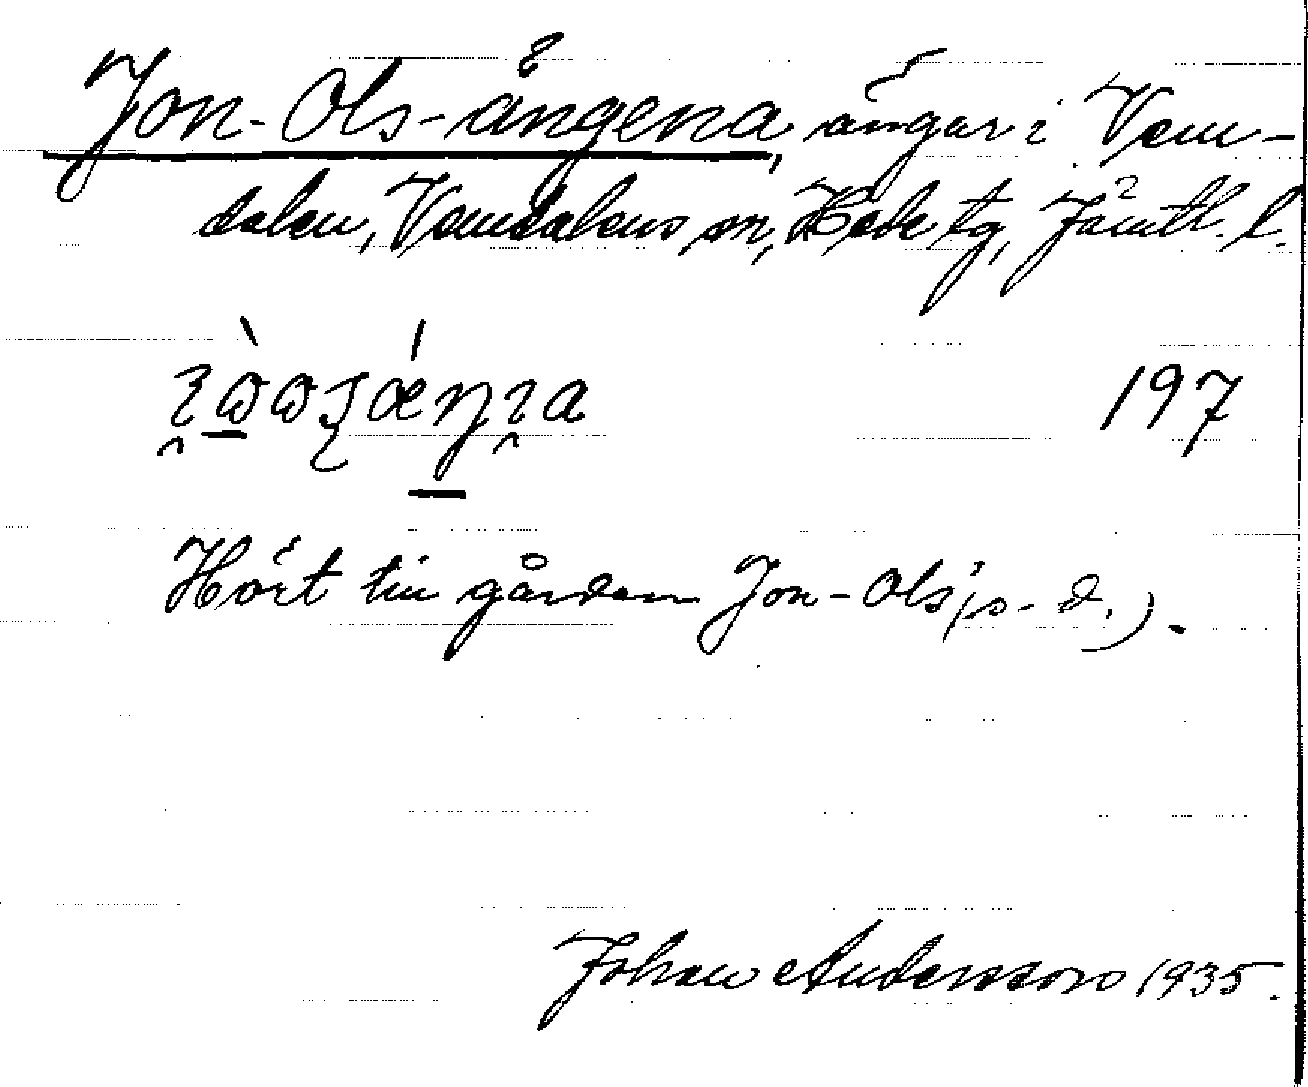 Jon-Ols-ängena, ängar i Vem-
dalen, Vemdalens sn, Hede tg, Jämtl. l.
197
Hört till gården Jon-Ols (s. d.).
Johan Andersson 1935.